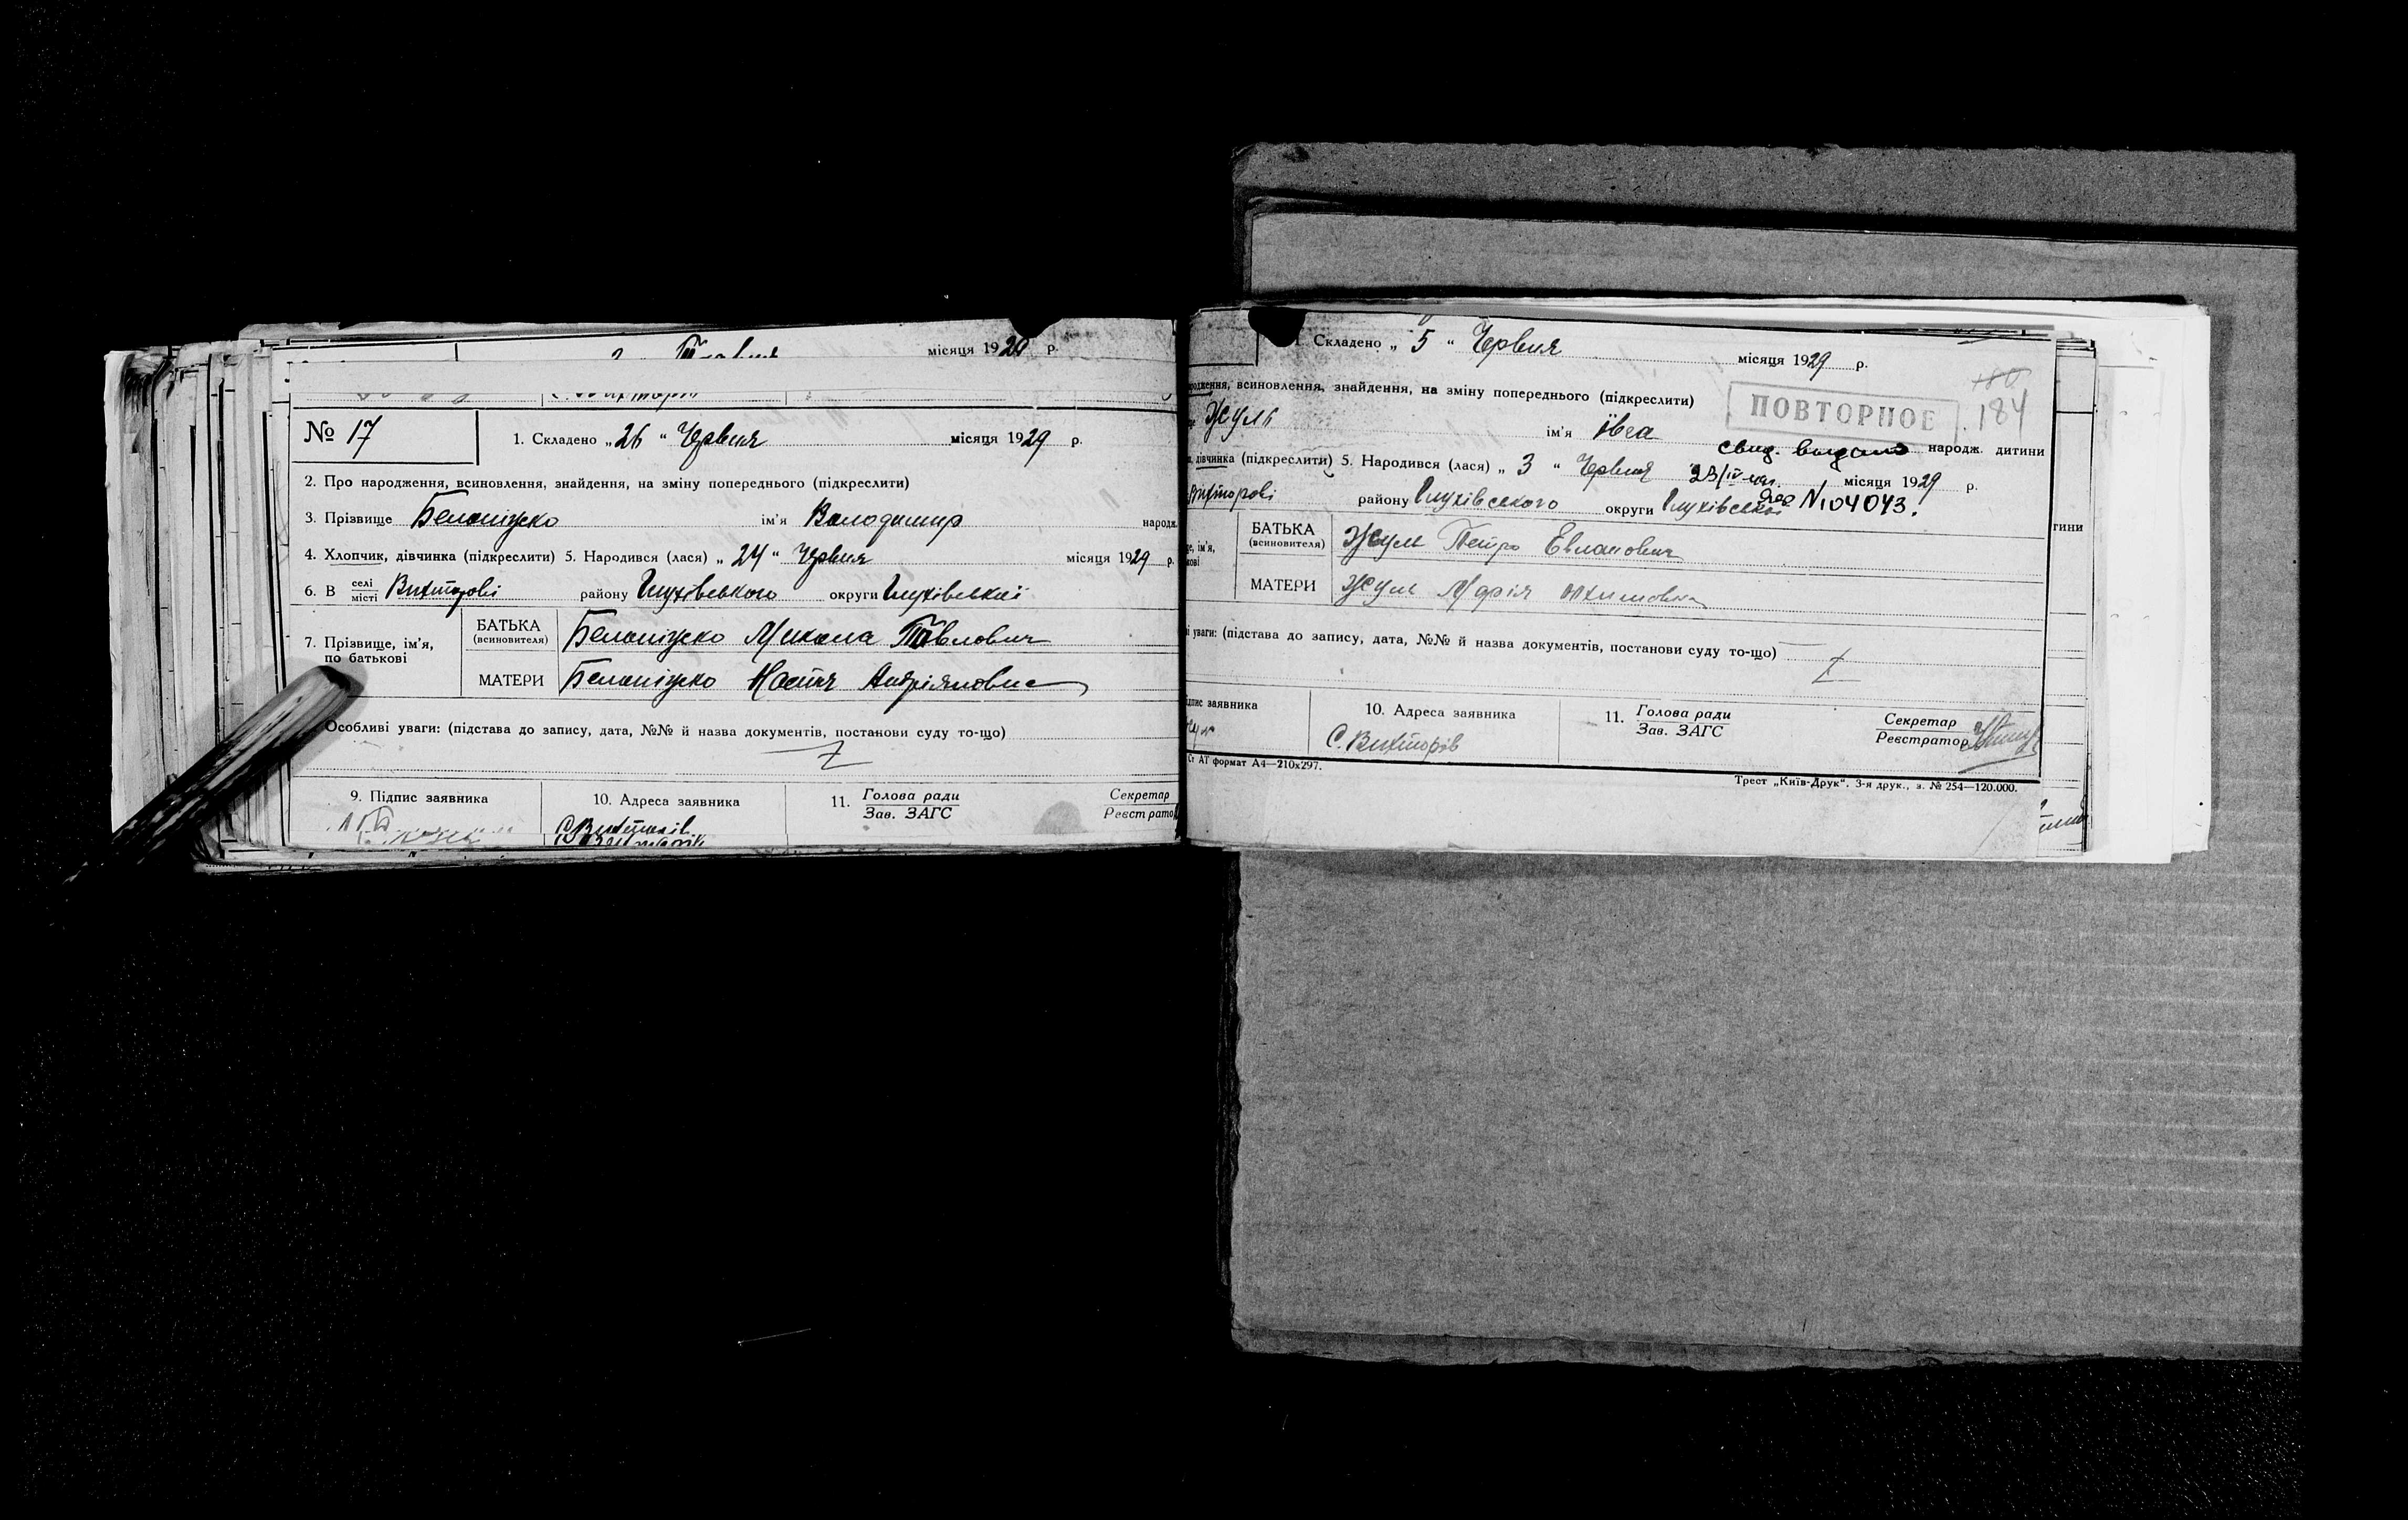 місяця 1929 р.
№ 17
1. Складено „ 26 “ Червня місяця 1929 р.
2. Про народження, всиновлення, знайдення, на зміну попереднього (підкреслити)
3. Прізвище ім'я Володимир народж.
4. Хлопчик, дівчинка (підкреслити) 5. Народився (лася) „ 24 “ Червня місяця 1929 р.
6. В селі місті Вихторові району Глухівського округи Глухівської
7. Прізвище, ім'я, по батькові
БАТЬКА (всиновителя) Микола Павлович
МАТЕРИ Настя Андріяновна
Особливі уваги: (підстава до запису, дата, №№ й назва документів, постанови суду то-що)
9. Підпис заявника 10. Адреса заявника 11. Голова ради Зав. ЗАГС Секретар Реєстратор
С. Вихторів
1. Складено „ 5 “ Червня місяця 1929 р.
родження, всиновлення, знайдення, на зміну попереднього (підкреслити)
ПОВТОРНОЕ
180
184
Жуль ім'я Ївга народж. дитини
свид. выдано
дівчинка (підкреслити) 5. Народився (лася) „ 3 “ Червня місяця 1929 р.
23/IV
Вихторові району Глухівського округи Глухівської
N 104043.
тини
ім'я,
БАТЬКА (всиновителя) Жуль Петро Евлампович
МАТЕРИ Жуль Марія
уваги: (підстава до запису, дата, №№ й назва документів, постанови суду то-що)
заявника 10. Адреса заявника 11. Голова ради Зав. ЗАГС Секретар Реєстратор
С. Вихторів
Ст АТ формат А4—210x297.
Трест „Київ-Друк“. 3-я друк., з. № 254—120.000.